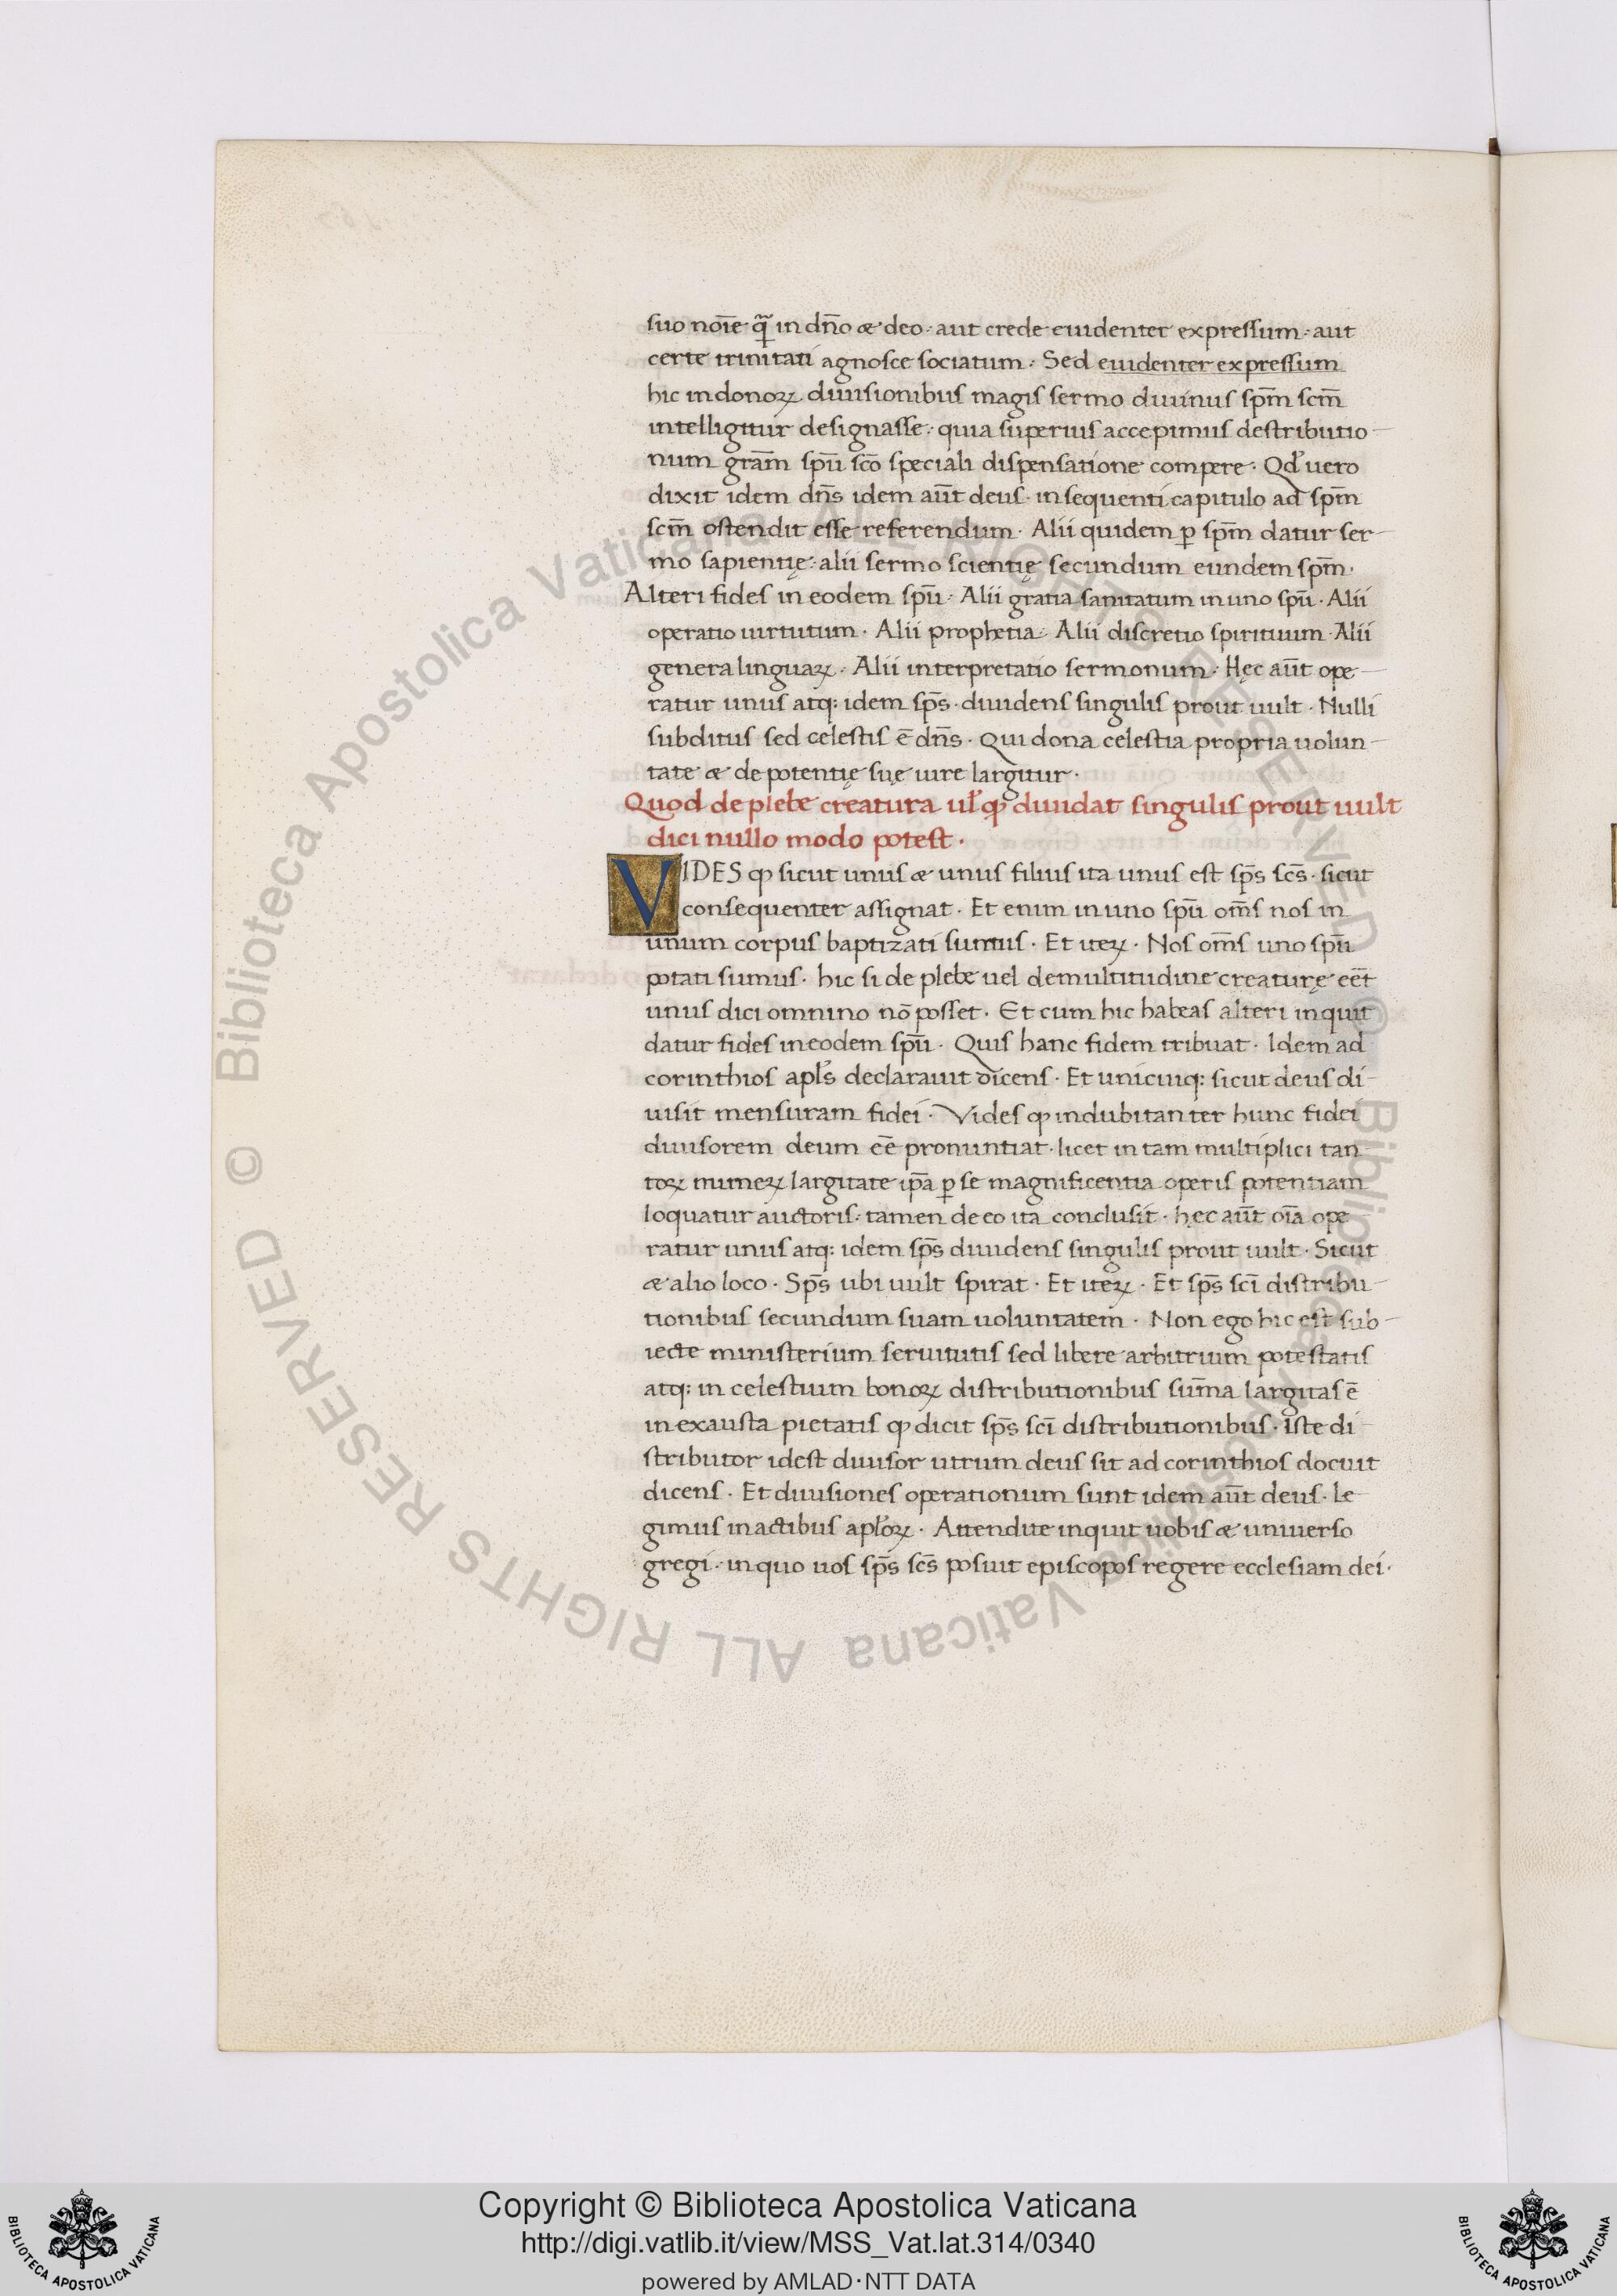 suo noi̅e q̅ in dn̅o & deo · aut crede euidenter expressum · aut
certe trinitati agnosce sociatum · Sed euidenter expressum
hic in donoꝝ diuisionibus magis sermo diuinus sp̅m sc̅m
intelligitur designasse · quia superius accepimus destributio-
num gra̅m spu̅ sc̅o speciali dispensatione compere · Qđ uero
dixit idem dn̅s idem au̅t deus · in sequenti capitulo ad sp̅m
sc̅m ostendit esse referendum · Alii quidem ꝑ sp̅m datur ser-
mo sapientię · alii sermo scientię secundum eundem sp̅m ·
Alteri fides in eodem spu̅ · Alii gratia sanitatum in uno spu̅ · Alii
operatio uirtutum · Alii prophetia · Alii discretio spirituum · Alii
genera linguaꝝ · Alii interpretatio sermonum · Hęc au̅t ope-
ratur unus atq: idem sp̅s · diuidens singulis prout uult · Nulli
subditus sed celestis e̅ dn̅s · Qui dona celestia propria uolun-
tate & de potentię suę iure largitur ·
Quod de plebe creatura ul̵ ꝙ diuidat singulis prout uult
dici nullo modo potest ·
VIDES ꝙ sicut unus & unus filius ita unus est sp̅s sc̅s · sicut
consequenter assignat · Et enim in uno spu̅ om̅s nos in
unum corpus baptizati sumus · Et iteꝝ · Nos om̅s uno spu̅
potati sumus · hic si de plebe uel de multitudine creaturę ee̅t
unus dici omnino no̅ posset · Et cum hic habeas alteri inquit
datur fides in eodem spu̅ · Quis hanc fidem tribuat · Idem ad
corinthios apl̵s declarauit dicens · Et unicuiq: sicut deus di-
uisit mensuram fidei · Vides ꝙ indubitanter hunc fidei
diuisorem deum ee̅ pronuntiat · licet in tam multiplici tan-
toꝝ muneꝝ largitate ip̅a ꝑ se magnificentia operis potentiam
loquatur auctoris · tamen de eo ita conclusit · hęc au̅t oi̅a ope
ratur unus atq: idem sp̅s diuidens singulis prout uult · Sicut
& alio loco · Sp̅s ubi uult spirat · Et iteꝝ · Et sp̅s sci̅ distribu-
tionibus secundum suam uoluntatem · Non ego hic est sub-
iecte ministerium seruitutis sed libere arbitrium potestatis
atq: in celestium bonoꝝ distributionibus sum̅a largitas e̅
in exausta pietatis ꝙ dicit sp̅s sci̅ distributionibus · Iste di
stributor idest diuisor utrum deus sit ad corinthios docuit
dicens · Et diuisiones operationum sunt idem au̅t deus · le
gimus in actibus apl̵oꝝ · Attendite inquit uobis & uniuerso
gregi · in quo uos sp̅s sc̅s posuit episcopos regere ecclesiam dei ·
© Biblioteca Apostolica Vaticana ALL RIGHTS RESERVED
© Biblioteca Apostolica Vaticana ALL RIGHTS RESERVED
Copyright © Biblioteca Apostolica Vaticana
http://digi.vatlib.it/view/MSS_Vat.lat.314/0340
powered by AMLAD · NTT DATA
BIBLIOTECA APOSTOLICA VATICANA
BIBLIOTECA APOSTOLICA VATICANA